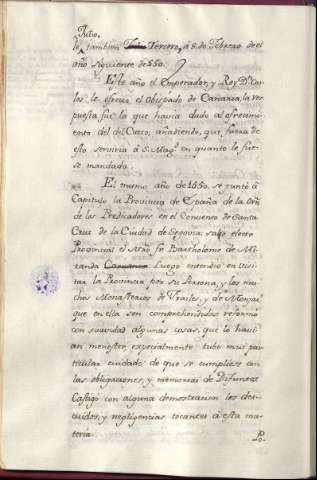 Julio,
lo tambien Julio Tercero, á 8. de Febrero de el
año siguiente de 550.
Este año el Emperador, y Rey Dn. Car
los le ofrecio el Obispado de Canaria, la res
puesta fue la que havia dado al ofrecimi
ento del del Cuzco, añadiendo, que fuera de
esto serviria á S. Magd. en quanto le fue-
se mandado.
El mismo año de 1550. se juntó á
Capitulo la Provincia de España de la Orn.
de los Predicadores en el Convento de Santa
Cruz de la Ciudad de Segovia: salió electo
Provincial el Mtro. fr. Bartholome de Mi-
randa Luego entendió en Visi
tar la Provincia por su Persona, y los mu
chos Monasterios de Frailes, y de Monjas
que en ella son comprehendidos reformó
con suavidad algunas cosas, que lo havi
an menester, especialmente tubo mui par
ticular cuidado de que se cumpliesen
las obligaciones, y memorias de Difuntos
Castigó con alguna demostracion los des-
cuidos, y negligencias tocantes á esta ma
teria.
Po-